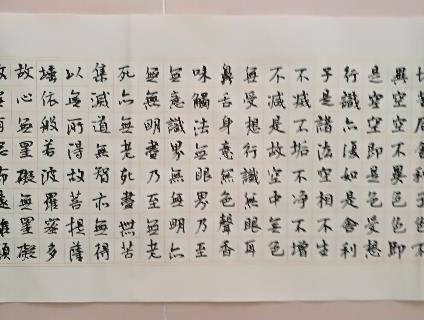 切苦厄舍利子色不
異空空不異色色即
是空空即是色受想
行識亦復如是舍利
子是諸法空相不生
不滅不垢不淨不增
不減是故空中無色
無受想行識無眼耳
鼻舌身意無色聲香
味觸法無眼界乃至
無意識界無無明亦
無無明盡乃至無老
死亦無老死盡無苦
集滅道無智亦無得
以無所得故菩提薩
埵依般若波羅蜜多
故心無罣礙無罣礙
故無有恐怖遠離顛